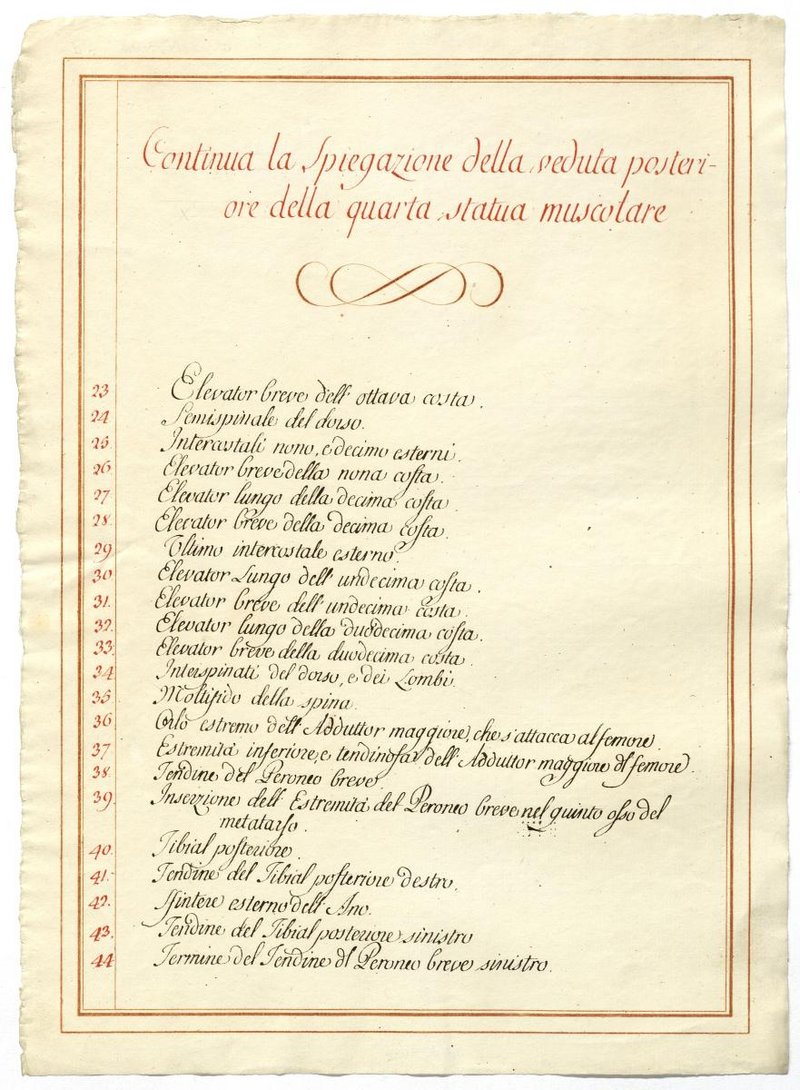 Continua la Spiegazione della veduta posteri-
ore della quarta statua muscolare
23 Elevator breve dell' ottava costa.
24 Semispinale del dorso.
25. Intercostali nono, e decimo esterni.
26 Elevator breve della nona costa.
27 Elevator lungo della decima costa.
28. Elevator breve della decima costa.
29 Ultimo intercostale esterno.
30 Elevator Lungo dell' undecima costa.
31. Elevator breve dell' undecima costa.
32. Elevator lungo della duodecima costa.
33. Elevator breve della duodecima costa.
34 Interspinati del dorso, e dei Lombi.
35 Moltifido della spina.
36 Orlo estremo dell' Adduttor maggiore, che s'attacca al femore.
37 Estremità inferiore, e tendinosa dell' Adduttor maggiore dl femore.
38. Tendine del Peroneo breve
39. Inserzione dell' Estremità del Peroneo breve nel quinto osso del
metatarso.
40. Tibial posteriore.
41. Tendine del Tibial posteriore destro.
42. Sfintere esterno dell' Ano.
43. Tendine del Tibial posteriore sinistro
44 Termine del Tendine dl Peroneo breve sinistro.